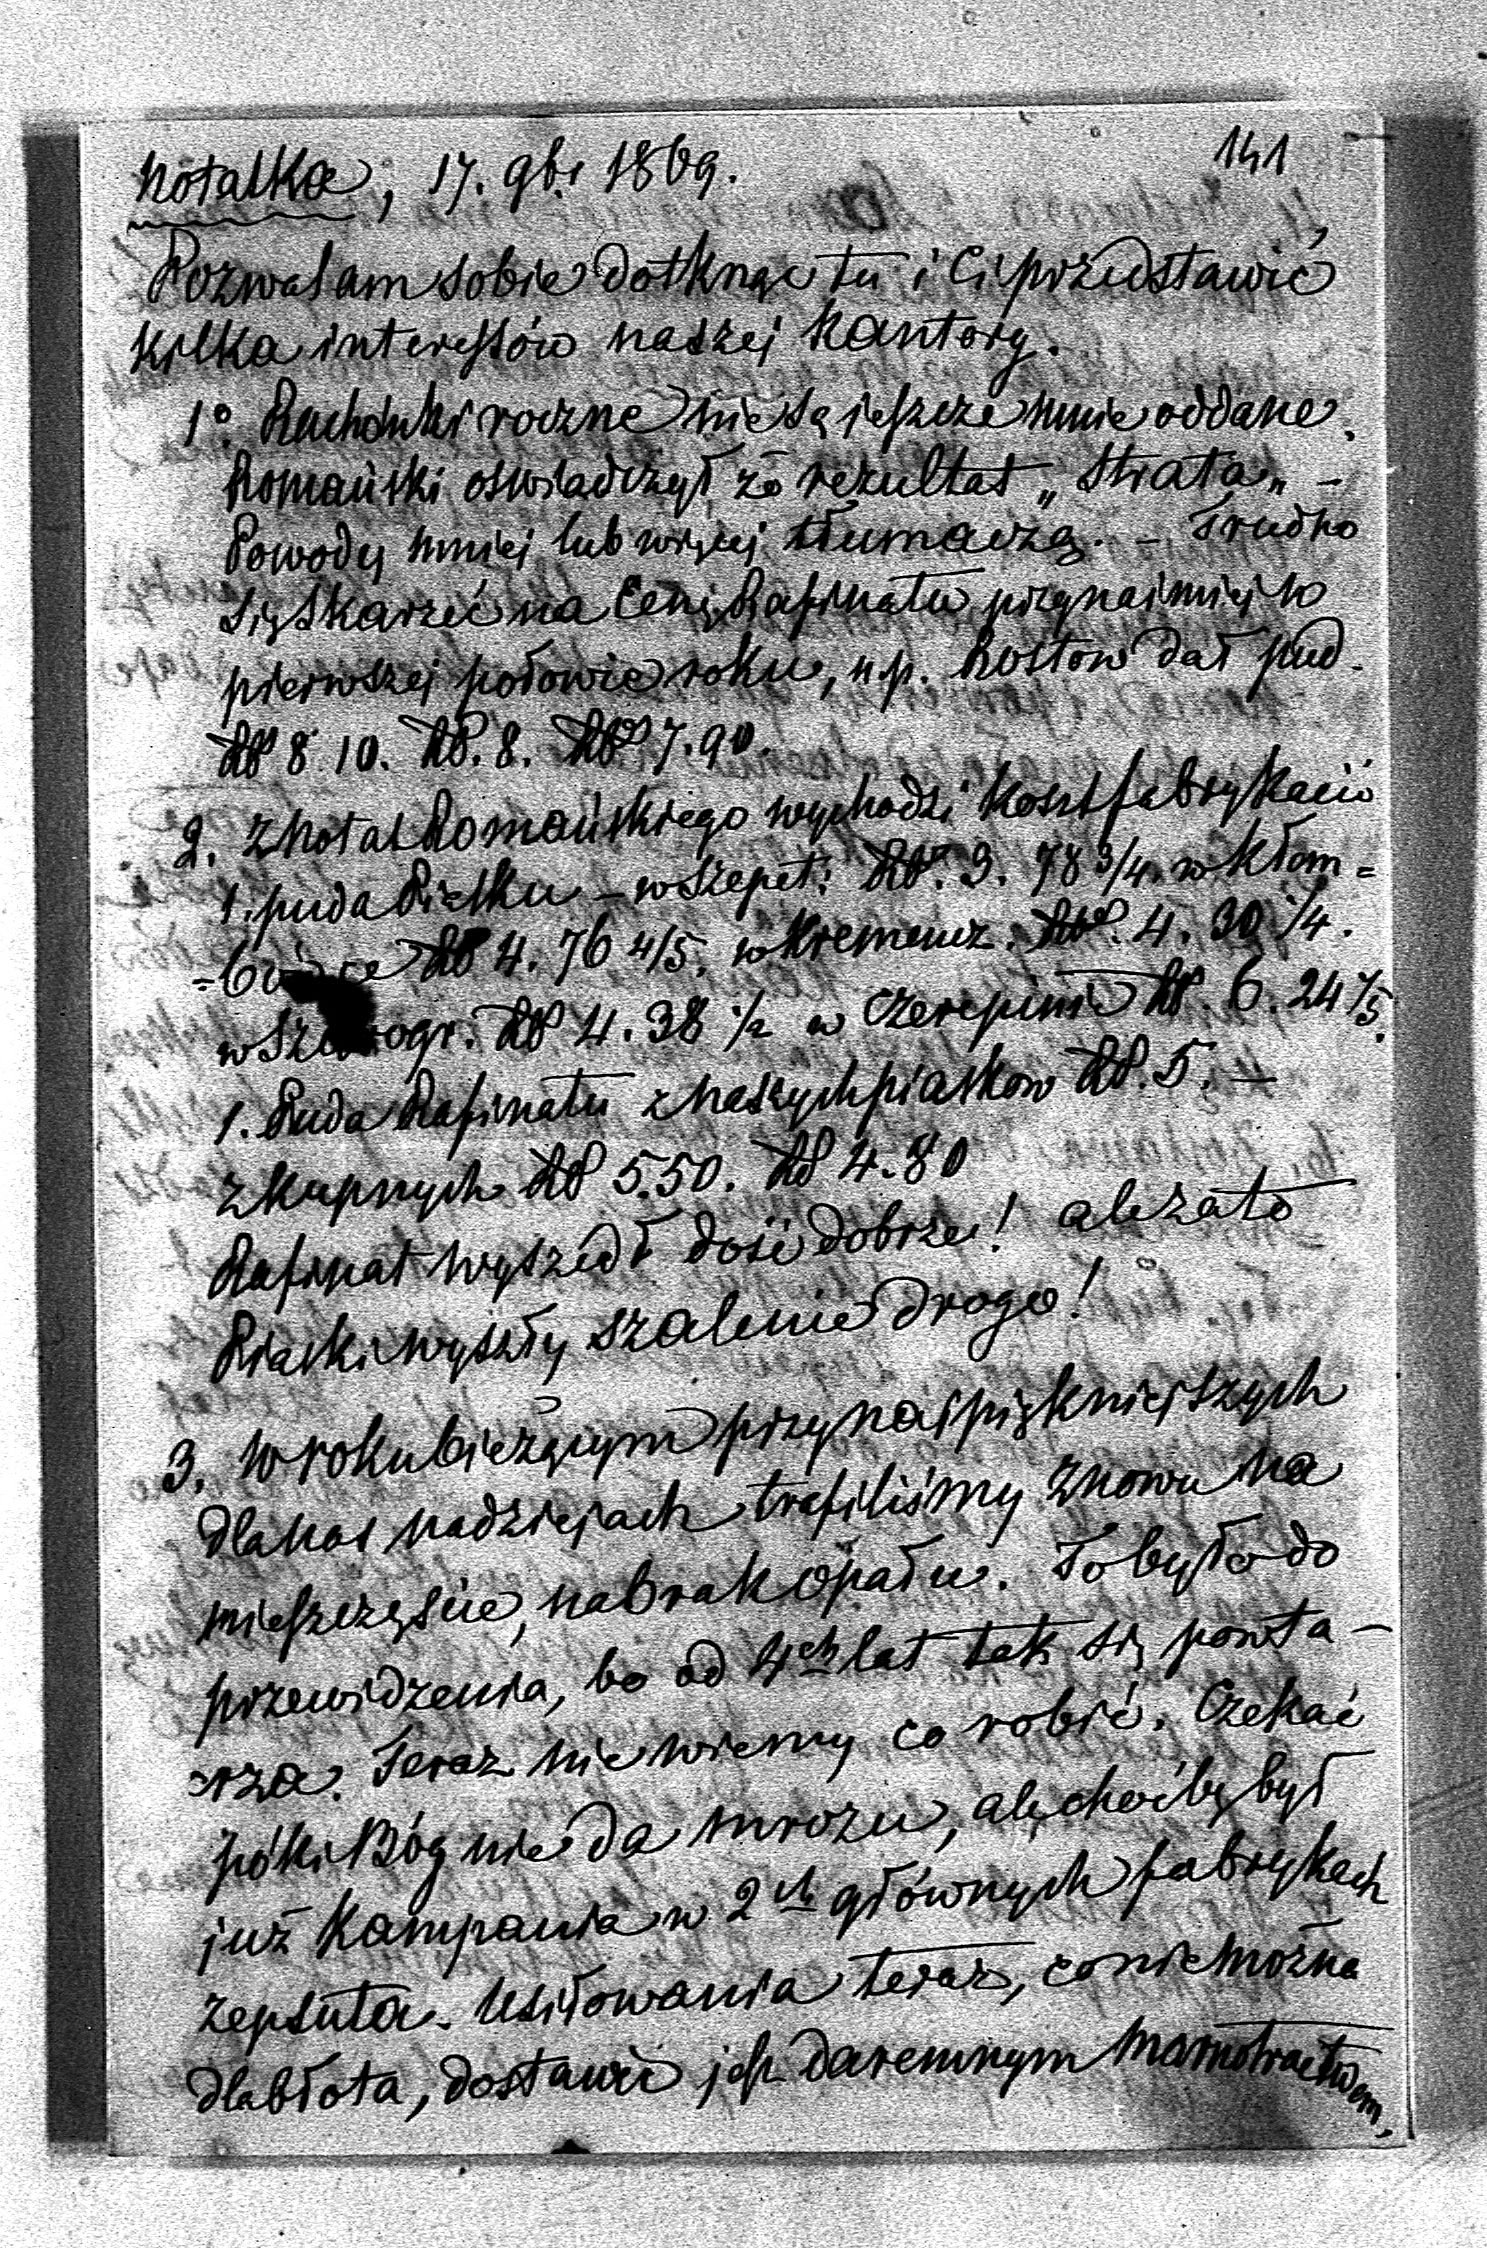 141
Notatka, 17. 9br. 1869.
Pozwalam sobie dotknąć tu i Ci przedstawić
kilka interessów naszej Kantory.
1º. Rachunki roczne nie są jeszcze mnie oddane.
Romański oswiadczył że rezultat „Strata„ –
Powody mniej lub więcej tłumaczą. – Trudno
się skarzeć na Cenę Rafinatu przynaimniej w
pierwszej połowie roku, n.p. Rostow dał pud.
Rb 8.10. Rb. 8. Rb 7.90.
2. Z notat Romańskiego wychodzi Koszt fabrykacii
1. puda Piasku – w Szepet: Rb. 3. 78 3/4. w Kłem=
Rb 4. 76 4/5. w Kremencz. Rb. 4. 30 1/4.
Rb 4. 38 1/2 w Czerepinie Rb. 6. 24
1. Puda Rafinatu z naszych piasków Rb. 5. –
z Kupnych Rb 5.50. Rb 4.80
Rafinat wyszedł dość dobrze! ale zato
Piaski wyszły szalenie drogo!
3. W roku bieżącym przy naipiękniejszych
dla nas nadziejach trafiliśmy znowu na
nieszczęście, na brak opału. To było do
przewidzenia, bo od 4ch lat tak się powta–
rza. Teraz nie wiemy co robić. Czekać
póki Bóg nie da mrozu, ale choćby był
już Kampania w 2ch głównych fabrykach
zepsuta. Usiłowania teraz, co nie można
dla błota, dostawić jest daremnym marnotractwem.